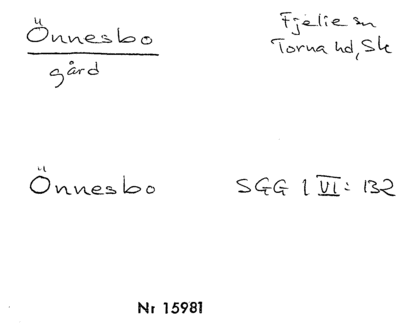 Önnesbo
gård
Fjelie sn
Torna hd, Sk
Önnesbo
SGG 1 VI: 132
Nr 15981